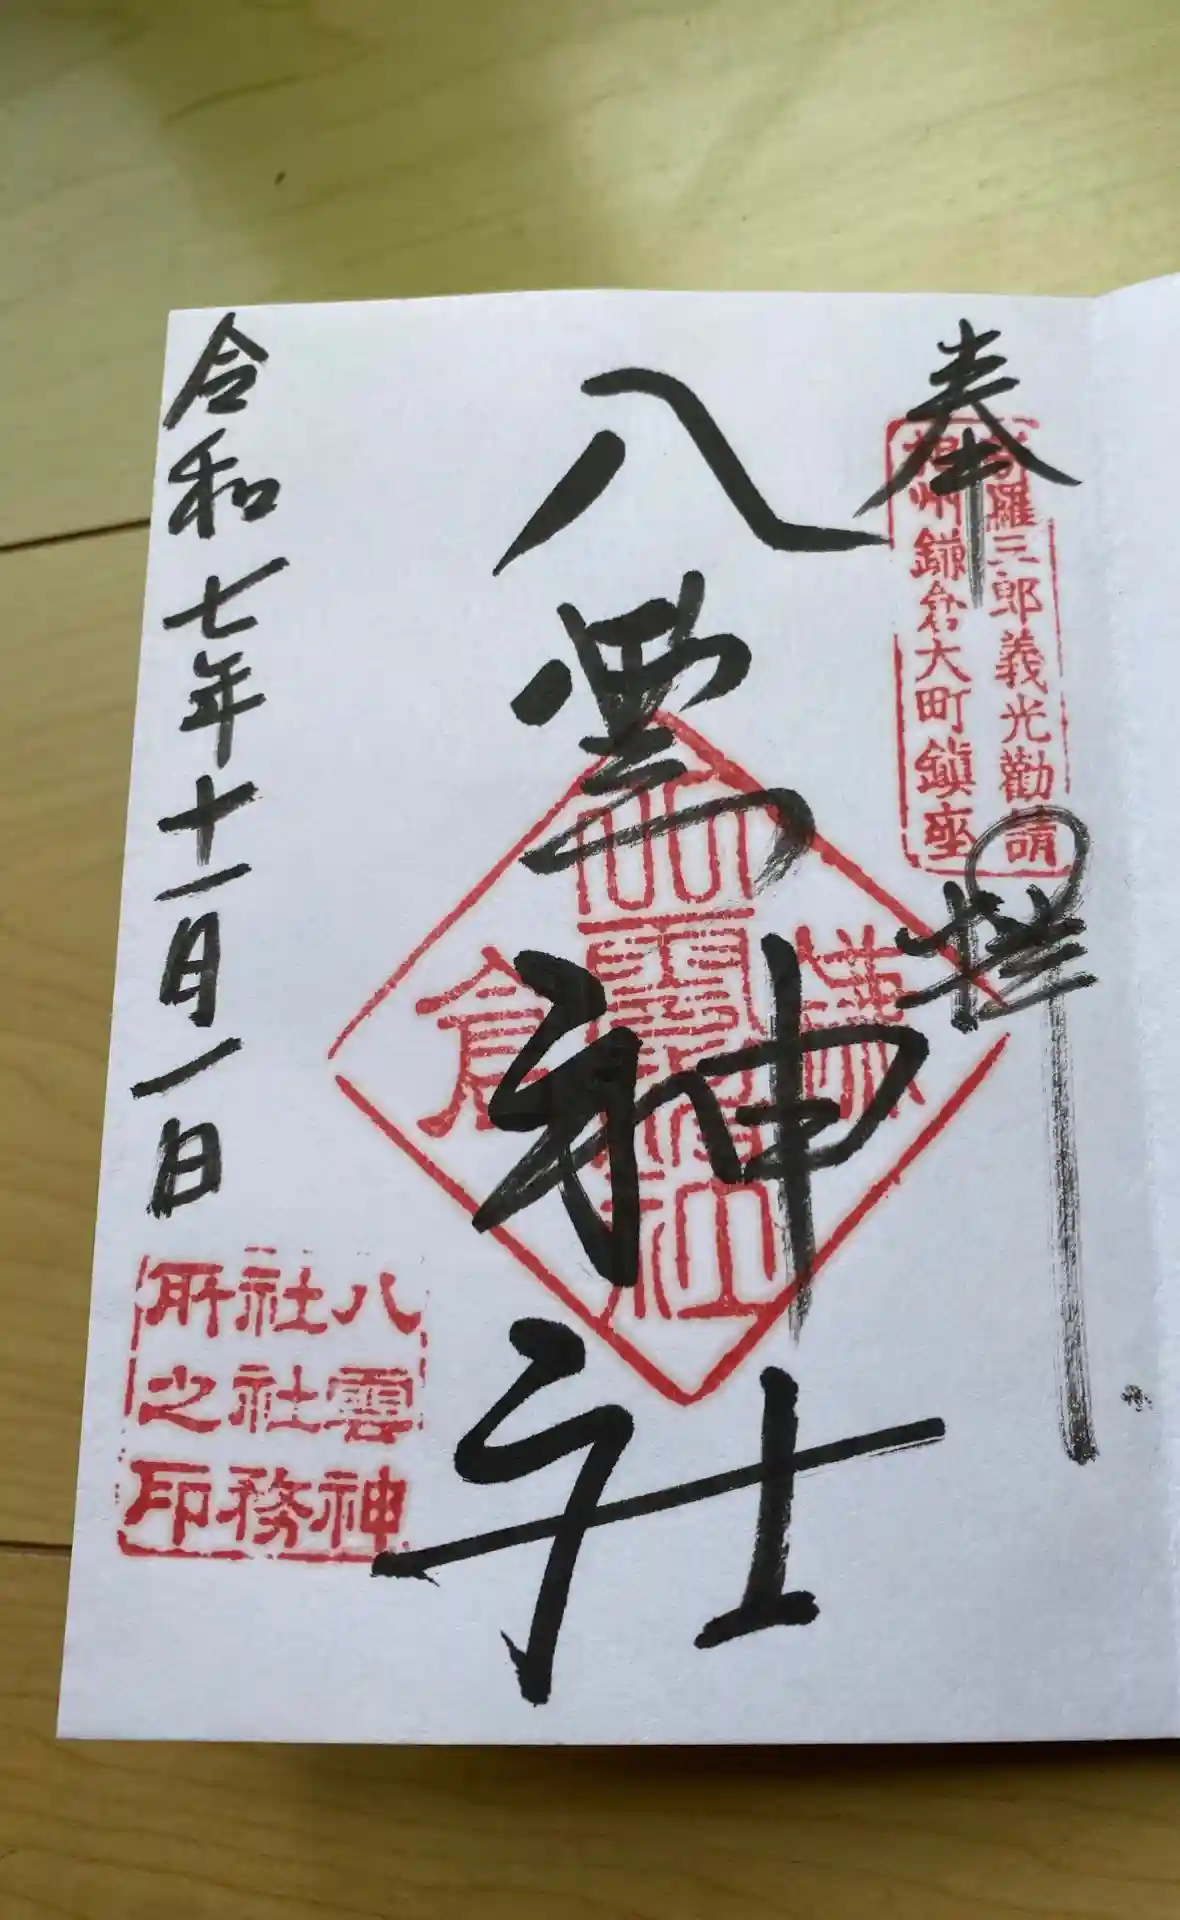 奉拝
新羅三郎義光勧請
相州鎌倉大町鎮座
八雲神社
鎌倉
八雲神社
令和七年十一月一日
八雲神
社社務
所之印